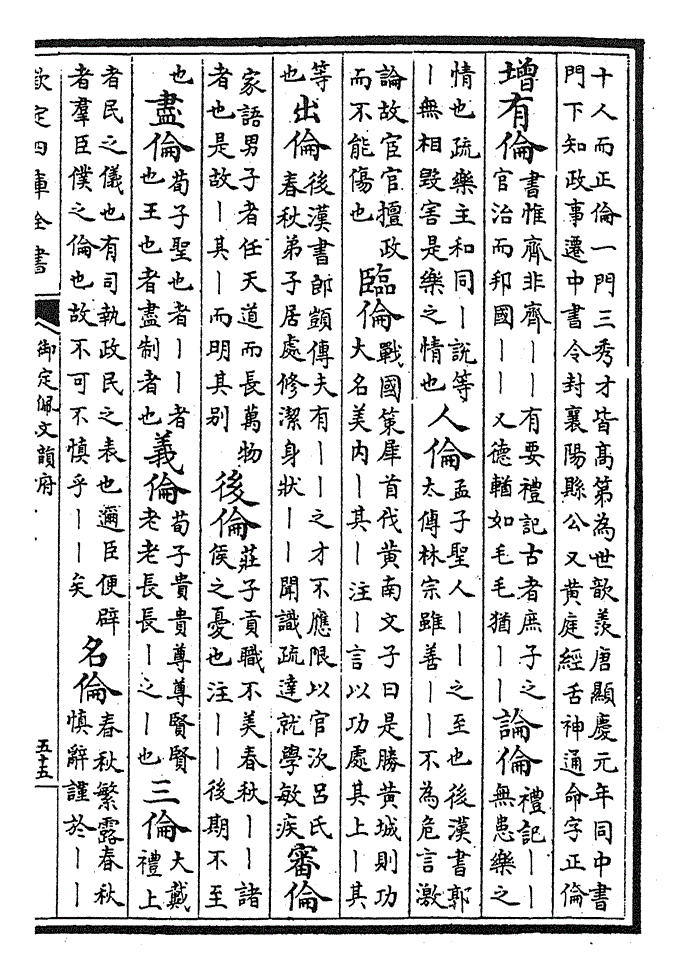 十人而正倫一門三秀才皆髙第為世歆羡唐顯慶元年同中書
門下知政事遷中書令封襄陽縣公又黄庭經舌神通命字正倫
增有倫
書惟齊非齊丨丨有要禮記古者庶子之
官治而邦國丨丨又德輶如毛毛猶丨丨
論倫
禮記丨丨
無患樂之
情也疏樂主和同丨說等
丨無相毀害是樂之情也
人倫
孟子聖人丨丨之至也後漢書郭
太傳林宗雖善丨丨不為危言激
論故宦官擅政
而不能傷也
臨倫
戰國策犀首伐黄南文子曰是勝黄城則功
大名美内丨其丨注丨言以功處其上丨其
等
也
出倫
後漢書郎顗傳夫有丨丨之才不應限以官次吕氏
春秋弟子居處修潔身狀丨丨聞識疏達就學敏疾
審倫
家語男子者任天道而長萬物
者也是故丨其丨而明其别
後倫
莊子貢職不美春秋丨丨諸
侯之憂也注丨丨後期不至
也
盡倫
荀子聖也者丨丨者
也王也者盡制者也
義倫
荀子貴貴尊尊賢賢
老老長長丨之丨也
三倫
大戴
禮上
者民之儀也有司執政民之表也邇臣便辟
者羣臣僕之倫也故不可不慎乎丨丨矣
名倫
春秋繁露春秋
慎辭謹於丨丨
欽定四庫全書
御定佩文韻府
五十五